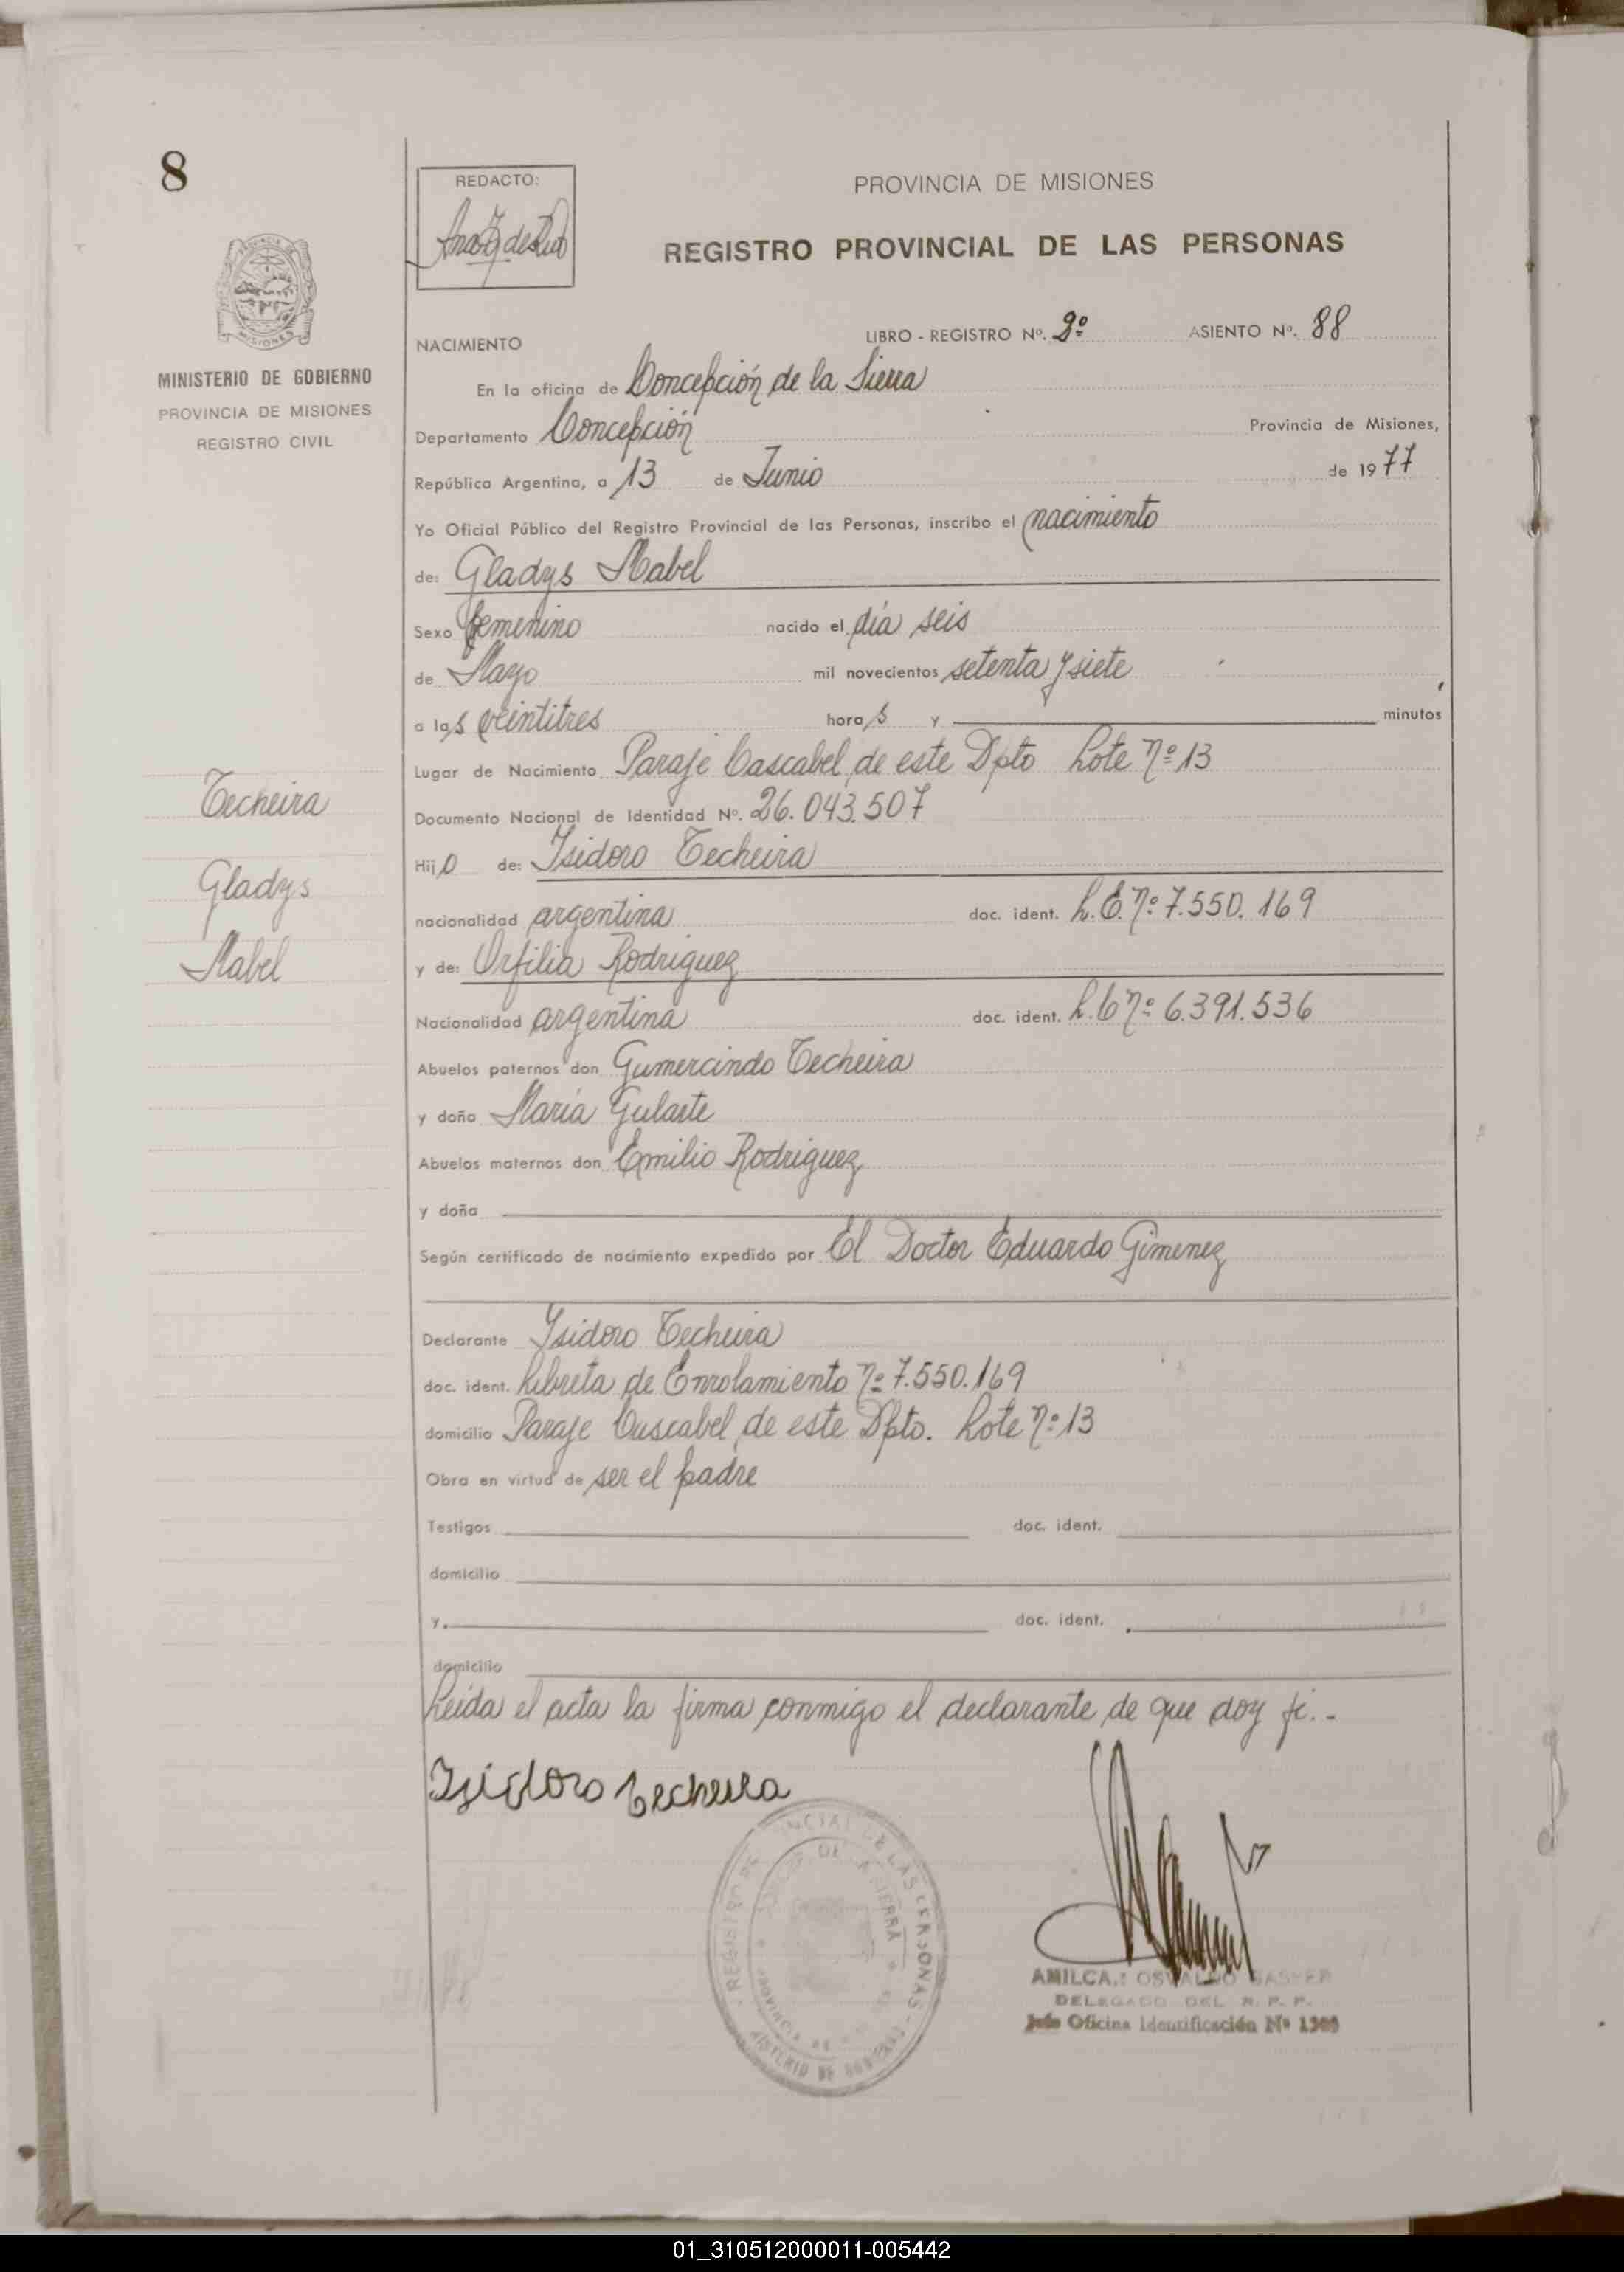 8
REDACTO:
PROVINCIA DE MISIONES
REGISTRO PROVINCIAL DE LAS PERSONAS
MISIONES
MINISTERIO DE GOBIERNO
PROVINCIA DE MISIONES
REGISTRO CIVIL
NACIMIENTO LIBRO - REGISTRO Nº. 2º ASIENTO Nº. 88
En la oficina de Concepción de la Sierra
Departamento Concepción Provincia de Misiones,
República Argentina, a 13 de Junio de 1977
Yo Oficial Público del Registro Provincial de las Personas, inscribo el nacimiento
de: Gladys Mabel
Sexo femenino nacido el día seis
de Mayo mil novecientos setenta y siete
a las veintitres horas y minutos
Lugar de Nacimiento Paraje Cascabel, de este Dpto Lote nº 13
Documento Nacional de Identidad Nº. 26.043.507
Techeira
Gladys
Mabel
Hijo de: Isidoro Techeira
nacionalidad argentina doc. ident. L.E. nº 7.550.169
y de: Orfilia Rodriguez
Nacionalidad argentina doc. ident. L.C nº 6.391.536
Abuelos paternos don Gumercindo Techeira
y doña María Gularte
Abuelos maternos don Emilio Rodriguez
y doña
Según certificado de nacimiento expedido por El Doctor Eduardo Gimenez
Declarante Isidoro Techeira
doc. ident. Libreta de Enrolamiento nº 7.550.169
domicilio Paraje Cascabel, de este Dpto. Lote nº 13
Obra en virtud de ser el padre
Testigos doc. ident.
domicilio
y. doc. ident.
domicilio
Leída el acta la firma conmigo el declarante de que doy fé.-
Isidoro Techeira
REGISTRO PROVINCIAL DE LAS PERSONAS
MINISTERIO DE GOBIERNO
DE LA SIERRA
PROVINCIA DE
DELEGADO DEL R. P. P.
Jefe Oficina Identificación Nº 1305
01_310512000011-005442